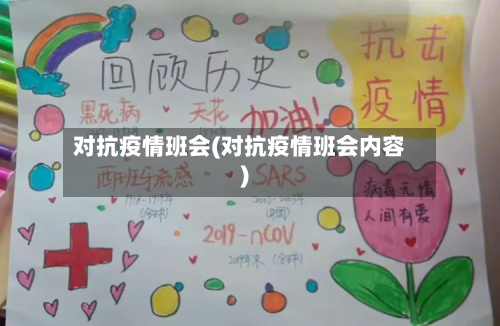 回顾历史
抗击
疫情
黑死病
天花
加油!
对抗疫情班会(对抗疫情班会内容
)
西班牙流感
SARS
1918-1919年
(全球)
2003-2003年
(中国)
病毒无情
人间有爱
2019-nCOV
2019年末(全球)